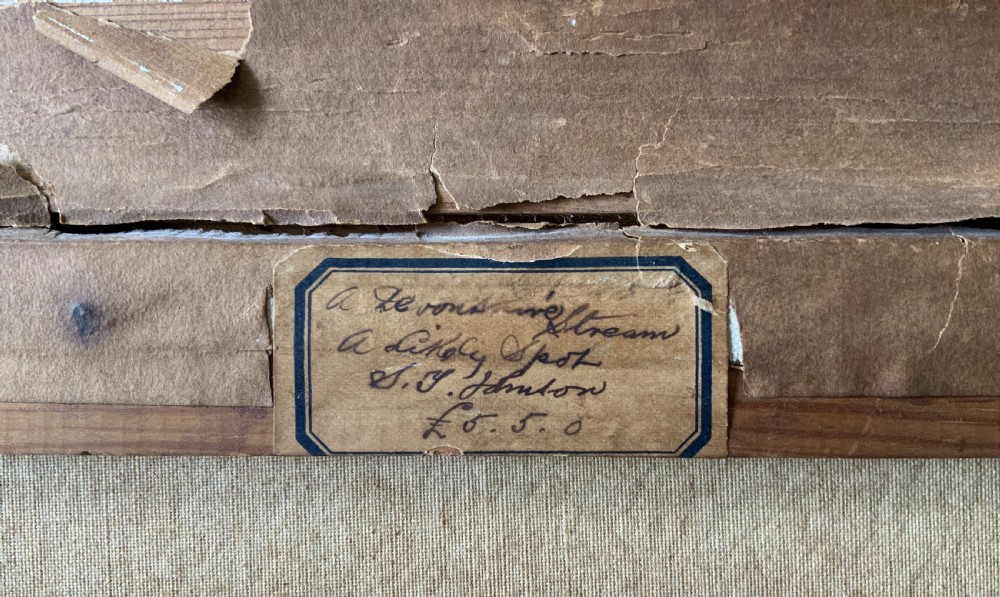 A Devonshire Stream
A Likely Spot
S. J.
£5.5.0